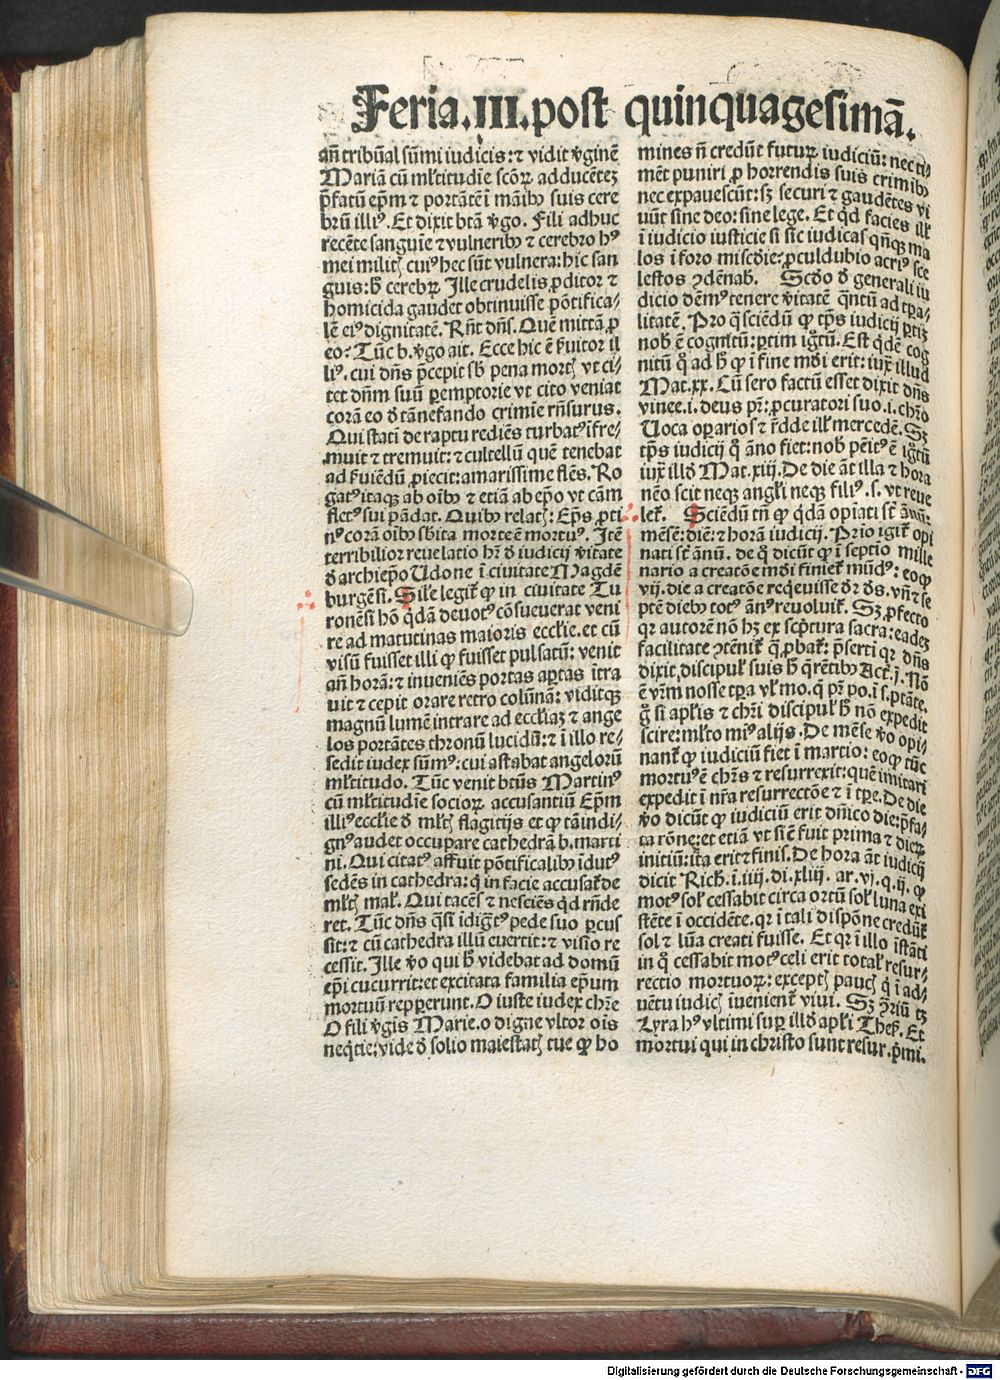 Feria.III.post quinquagesimā.
añ tribūal sūmi iudicis: ⁊ vidit v̄ginē
Mariā cū ml̄titudīe scōꝝ adducētez
p̄fatū ep̄m ⁊ portātē ī māibꝰ suis cere
brū illiꝰ. Et dixit btā v̄go. Fili adhuc
recēte sanguīe ⁊ vulneribꝰ ⁊ cerebro hꝰ
mei milit cuiꝰ hec sūt vulnera: hic san
guis: h̄ cerebꝝ Ille crudelis ꝓditor ⁊
homicida gaudet obtinuisse pōtifica-
lē eiꝰ dignitatē. Rn̄t dn̄s. Quē mittā ꝓ
eo? Tūc b. v̄go ait. Ecce hic ē ẜuitor il
liꝰ. cui dn̄s p̄cepit sb̄ pena mort vt ci-
tet dn̄m suū ꝑemptorie vt cito veniat
corā eo d̄ tā nefando crimīe rn̄surus.
Qui statī de raptu rediēs turbatꝰ īfre-
muit ⁊ tremuit: ⁊ cultellū quē tenebat
ad ẜuiēdū ꝓiecit: amarissime flēs. Ro
gatꝰ itaqꝫ ab oībꝰ ⁊ etiā ab ep̄o vt cām
fletꝰ sui pādat. Quibꝰ relat: Ep̄s ꝓti
nꝰ corā oībꝰ sb̄ita morte ē mortuꝰ. Itē
terribilior reuelatio hr̄ d̄ iudicij v̄itate
d̄ archiep̄o Udone ī ciuitate Magdē
burgēsi. Sil̄e legit ꝙ in ciuitate Tu
ronēsi hō q̄dā deuotꝰ cōsueuerat veni
re ad matutinas maioris eccl̄ie. et cū
visū fuisset illi ꝙ fuisset pulsatū: venit
añ horā: ⁊ inueniēs portas aꝑtas ītra
uit ⁊ cepit orare retro colūnā: viditqꝫ
magnū lumē intrare ad eccl̄iaz ⁊ ange
los portātes thronū lucidū: ⁊ ī illo re-
sedit iudex sūmꝰ: cui astabat angelorū
ml̄titudo. Tūc venit btūs Martinꝰ
cū ml̄titudīe socioꝝ accusantiū Ep̄m
illiꝰ eccl̄ie d̄ ml̄t flagitijs et ꝙ tā indi-
gnꝰ audet occupare cathedrā b. marti
ni. Qui citatꝰ affuit pōtificalibꝰ īdutꝰ
sedēs in cathedra: q̄ in facie accusat̄ de
ml̄t mal. Qui tacēs ⁊ nesciēs qd rn̄de
ret. Tūc dn̄s q̄si īdigtꝰ pede suo ꝑcus
sit: ⁊ cū cathedra illū euertit: ⁊ visio re
cessit. Ille v̄o qui h̄ videbat ad domū
ep̄i cucurrit: et excitata familia ep̄um
mortuū repꝑerunt. O iuste iudex chr̄e
O fili v̄gīs Marie. o digne vltor oīs
neq̄tie: vide d̄ solio maiestat tue ꝙ ho
mines n̄ credūt futuꝝ iudiciū: nec ti-
mēt puniri ꝓ horrendis suis crimibꝰ
nec expauescūt: sꝫ securi ⁊ gaudētes vi
uūt sine deo: sine lege. Et qd facies ill
ī iudicio iusticie si sic iudicas qn̄qꝫ ma
los ī foro misc̄die? ꝓculdubio acriꝰ sce
lestos ꝯdēnab. Scd̄o d̄ generali iu
dicio dēmꝰ tenere v̄itatē q̄ntū ad tꝑa-
litatē. Pro q̄ sciēdū ꝙ tp̄s iudicij ꝑtiꝫ
nob ē cognitū: ꝑtim igtū. Est qdē cog
nitū q̄ ad h̄ ꝙ ī fine mdi erit: iux̄ illud
Mat.xx. Cū sero factū esset dixit dn̄s
vinee.i. deus pr̄: ꝓcuratori suo.i. chr̄o
Uoca oꝑarios ⁊ r̄dde ill mercedē. Sꝫ
tp̄s iudicij q̄ āno fiet: nob penitꝰ ē igtū
iux̄ illd Mat.xiij. De die āt illa ⁊ hora
nēo scit neqꝫ angl̄i neqꝫ filiꝰ.s. vt reue
let. Sciēdū tn̄ ꝙ q̄dā opīati st̄ ānū:
mēsē: diē: ⁊ horā iudicij. Prīo igit opi
nati st̄ ānū. de q̄ dicūt ꝙ ī septīo mille
nario a creatōe mdi finiet mūdꝰ: eo ꝙ
vij. die a creatōe req̄euisse dr̄ ds. vn̄ ⁊ se
ptē diebꝰ totꝰ ānꝰ reuoluit. Sꝫ ꝓfecto
qꝛ autorē nō hꝫ ex scp̄tura sacra: eadeꝫ
facilitate ꝯtēnit q̄ ꝓbat: p̄serti qꝛ dn̄s
dixit discipul suis h̄ q̄rētibꝰ Act.j. Nō
ē vr̄m nosse tꝑa vl̄ mo. q̄ pr̄ po. ī s. ptāte.
ḡ si apl̄is ⁊ chr̄i discipul h̄ nō expedit
scire: ml̄to miꝰ alijs. De mēse v̄o opi-
nant ꝙ iudiciū fiet ī martio: eo ꝙ tūc
mortuꝰ ē chr̄s ⁊ resurrexit: quē imitari
expedit ī nr̄a resurrectōe ⁊ ī tꝑe. De die
v̄o dicūt ꝙ iudiciū erit dn̄ico die: p̄fa-
ta rōne: et etiā vt sic fuit prima ⁊ dieꝝ
initiū: ita erit ⁊ finis. De hora āt iudicij
dicit Rich. ī.iiij. di.xliij. ar.vj. q.ij. ꝙ
motꝰ sol cessabit circa ortū sol luna exi
stēte ī occidēte. qꝛ ī tali dispōne credūt
sol ⁊ lūa creati fuisse. Et qꝛ ī illo īstāti
in q̄ cessabit motꝰ celi erit total resur-
rectio mortuoꝝ: except pauc q̄ ī ad-
uētu iudic īuenient viui. Sꝫ ꝯriū tꝫ
Lyra hꝰ vltimi suꝑ illd apl̄i Thes. Et
mortui qui in christo sunt resur. p̄mi.
Digitalisierung gefördert durch die Deutsche Forschungsgemeinschaft - DFG